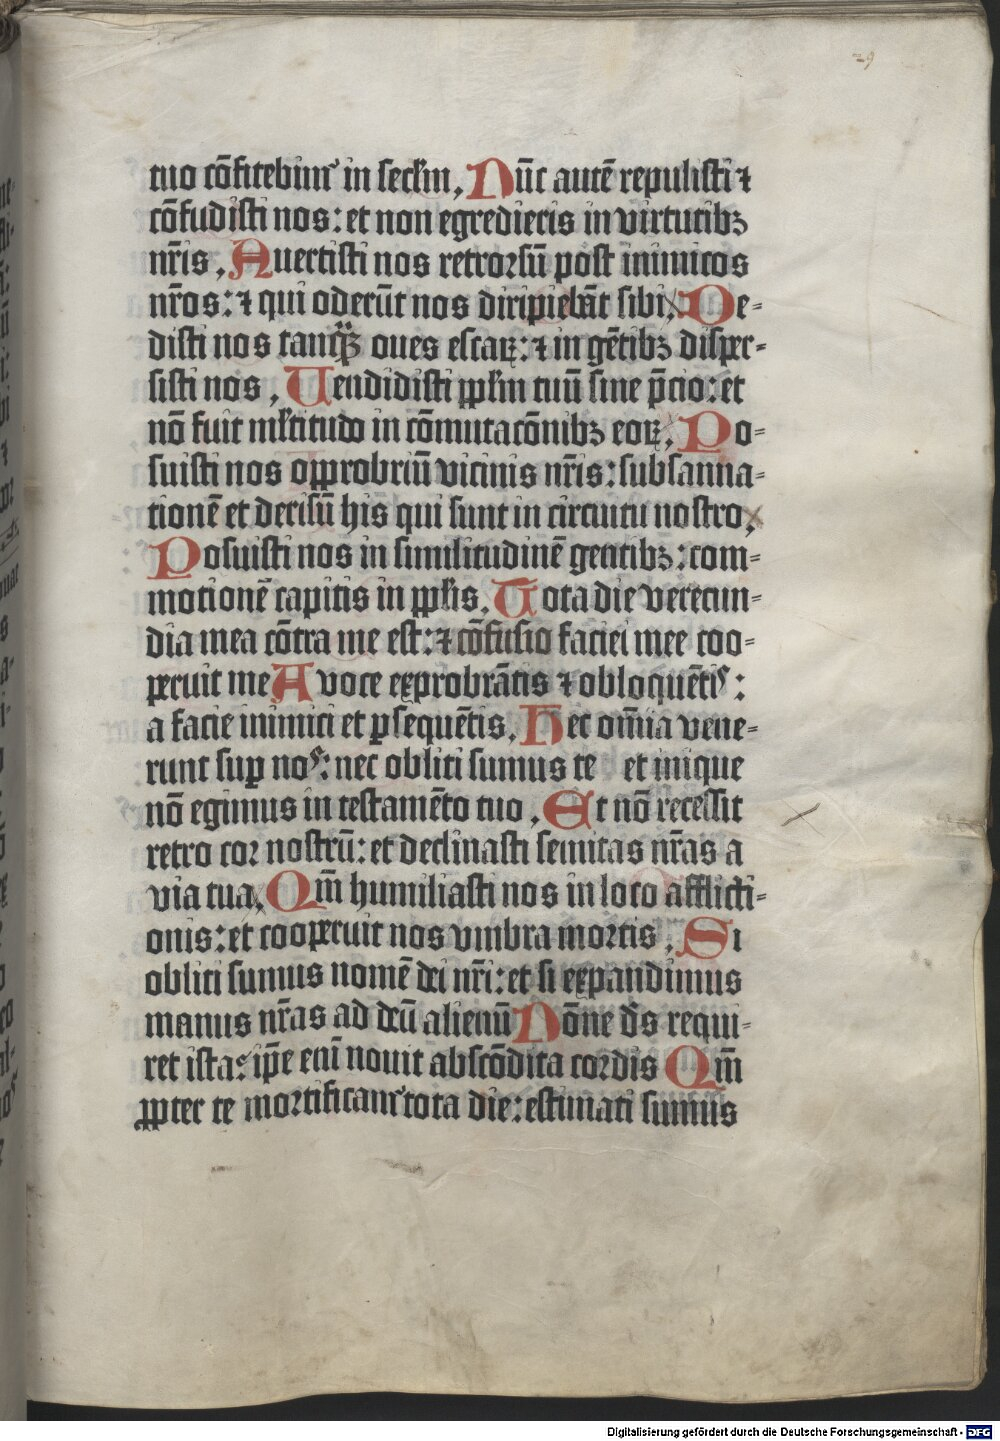 29
tuo cōfitebimꝰ in secl̄m, Nūc autē repulisti ⁊
cōfudisti nos: et non egredieris in virtutibꝫ
nr̄is, Auertisti nos retrorsū post inimicos
nr̄os: ⁊ qui oderūt nos diripiebāt sibi, De-
disti nos tanqꝫ oues escaꝝ: ⁊ in gētibꝫ disper-
sisti nos, Uendidisti ppl̄m tuū sine p̄cio: et
nō fuit ml̄titudo in cōmutacōnibꝫ eoꝝ, Po-
suisti nos opprobriū vicinis nr̄is: subsanna-
tionē et derisū his qui sunt in circuitu nostro,
Posuisti nos in similitudinē gentibꝫ: com-
motionē capitis in ppl̄is, Tota die verecun-
dia mea cōtra me est: ⁊ cōfusio faciei mee coo-
peruit me A voce exprobrātis ⁊ obloquētiꝰ:
a facie inimici et ꝑsequētis, Hec om̄ia vene-
runt suꝑ noˢ: nec obliti sumus te et inique
nō egimus in testamēto tuo, Et nō recessit
retro cor nostrū: et declinasti semitas nr̄as a
via tua, Qm̄ humiliasti nos in loco afflicti-
onis: et cooperuit nos vmbra mortis, Si
obliti sumus nomē dei nr̄i: et si expandimus
manus nr̄as ad deū alienū Nōne d̄s requi-
ret ista: ip̄e eni̅ novit abscōdita cordis Qm̄
ꝓpter te mortificamꝰ tota die: estimati sumus
Digitalisierung gefördert durch die Deutsche Forschungsgemeinschaft - DFG